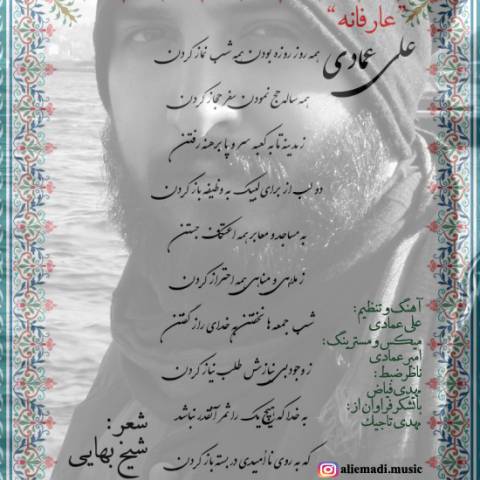 ”عارفانه“
علی عمادی
همه روز روزه بودن همه شب نماز کردن
همه ساله حج نمودن سفر حجاز کردن
ز مدینه تا به کعبه سر و پا برهنه رفتن
دو لب از برای لبیک به وظیفه باز کردن
به مساجد و معابر همه اعتکاف جستن
ز ملاهی و مناهی همه احتراز کردن
شب جمعه ها نخفتن به خدای راز گفتن
ز وجود بی نیازش طلب نیاز کردن
به خدا که هیچ یک را ثمر آنقدر نباشد
که به روی نا امیدی در بسته باز کردن
آهنگ و تنظیم:
علی عمادی
میکس و مسترینگ:
امیر عمادی
ناظر ضبط:
مهدی فیاض
با تشکر فراوان از:
مهدی تاجیک
شعر:
شیخ بهایی
aliemadi.music